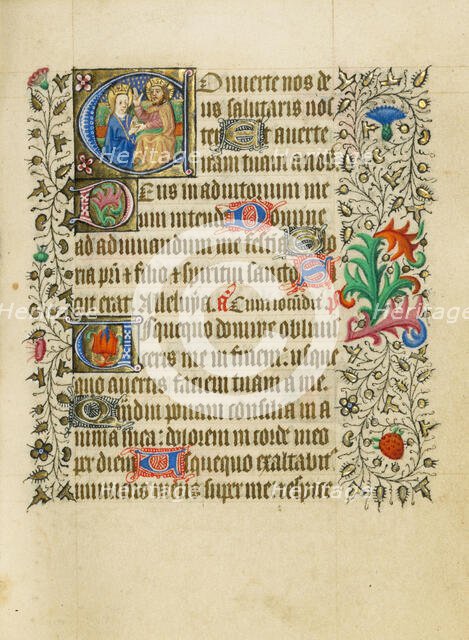 Conuerte nos de
us salutaris nos
ter Et auerte
iram tuam
Deus in adiutorium me
um intende Domine
ad adiuuandum me festina Glo
ria pri & filio & spiritui sancto S
icut erat Alleluya. a Cum iocundi
Usquequo domine obliui
sceris me in finem: usque
quo auertis faciem tuam a me.
ponam consilia in a
nima mea: dolorem in corde meo
per diem Usquequo exaltabit
super me
Heritage